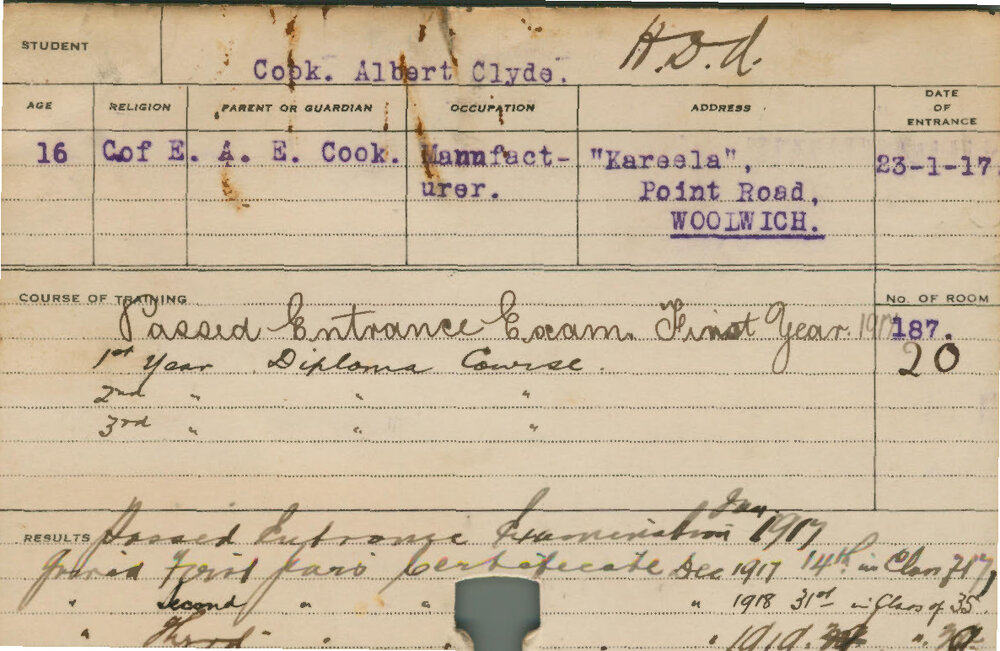 STUDENT
Cook. Albert Clyde.
H.D.A.
AGE RELIGION PARENT OR GUARDIAN OCCUPATION ADDRESS DATE OF ENTRANCE
16 C.of E. A. E. Cook. Manufact- "Kareela", 23-1-17
urer. Point Road,
WOOLWICH.
COURSE OF TRAINING No. OF ROOM
Passed Entrance Exam. First Year. 1917 187.
1st Year Diploma Course. 20
2nd " " "
3rd " " "
RESULTS Passed Entrance Examination Jan. 1917
First Years Certificate Dec 1917 14th in Class
" Second " " " 1918 31st in Class of 35.
" Third " " " 1919.